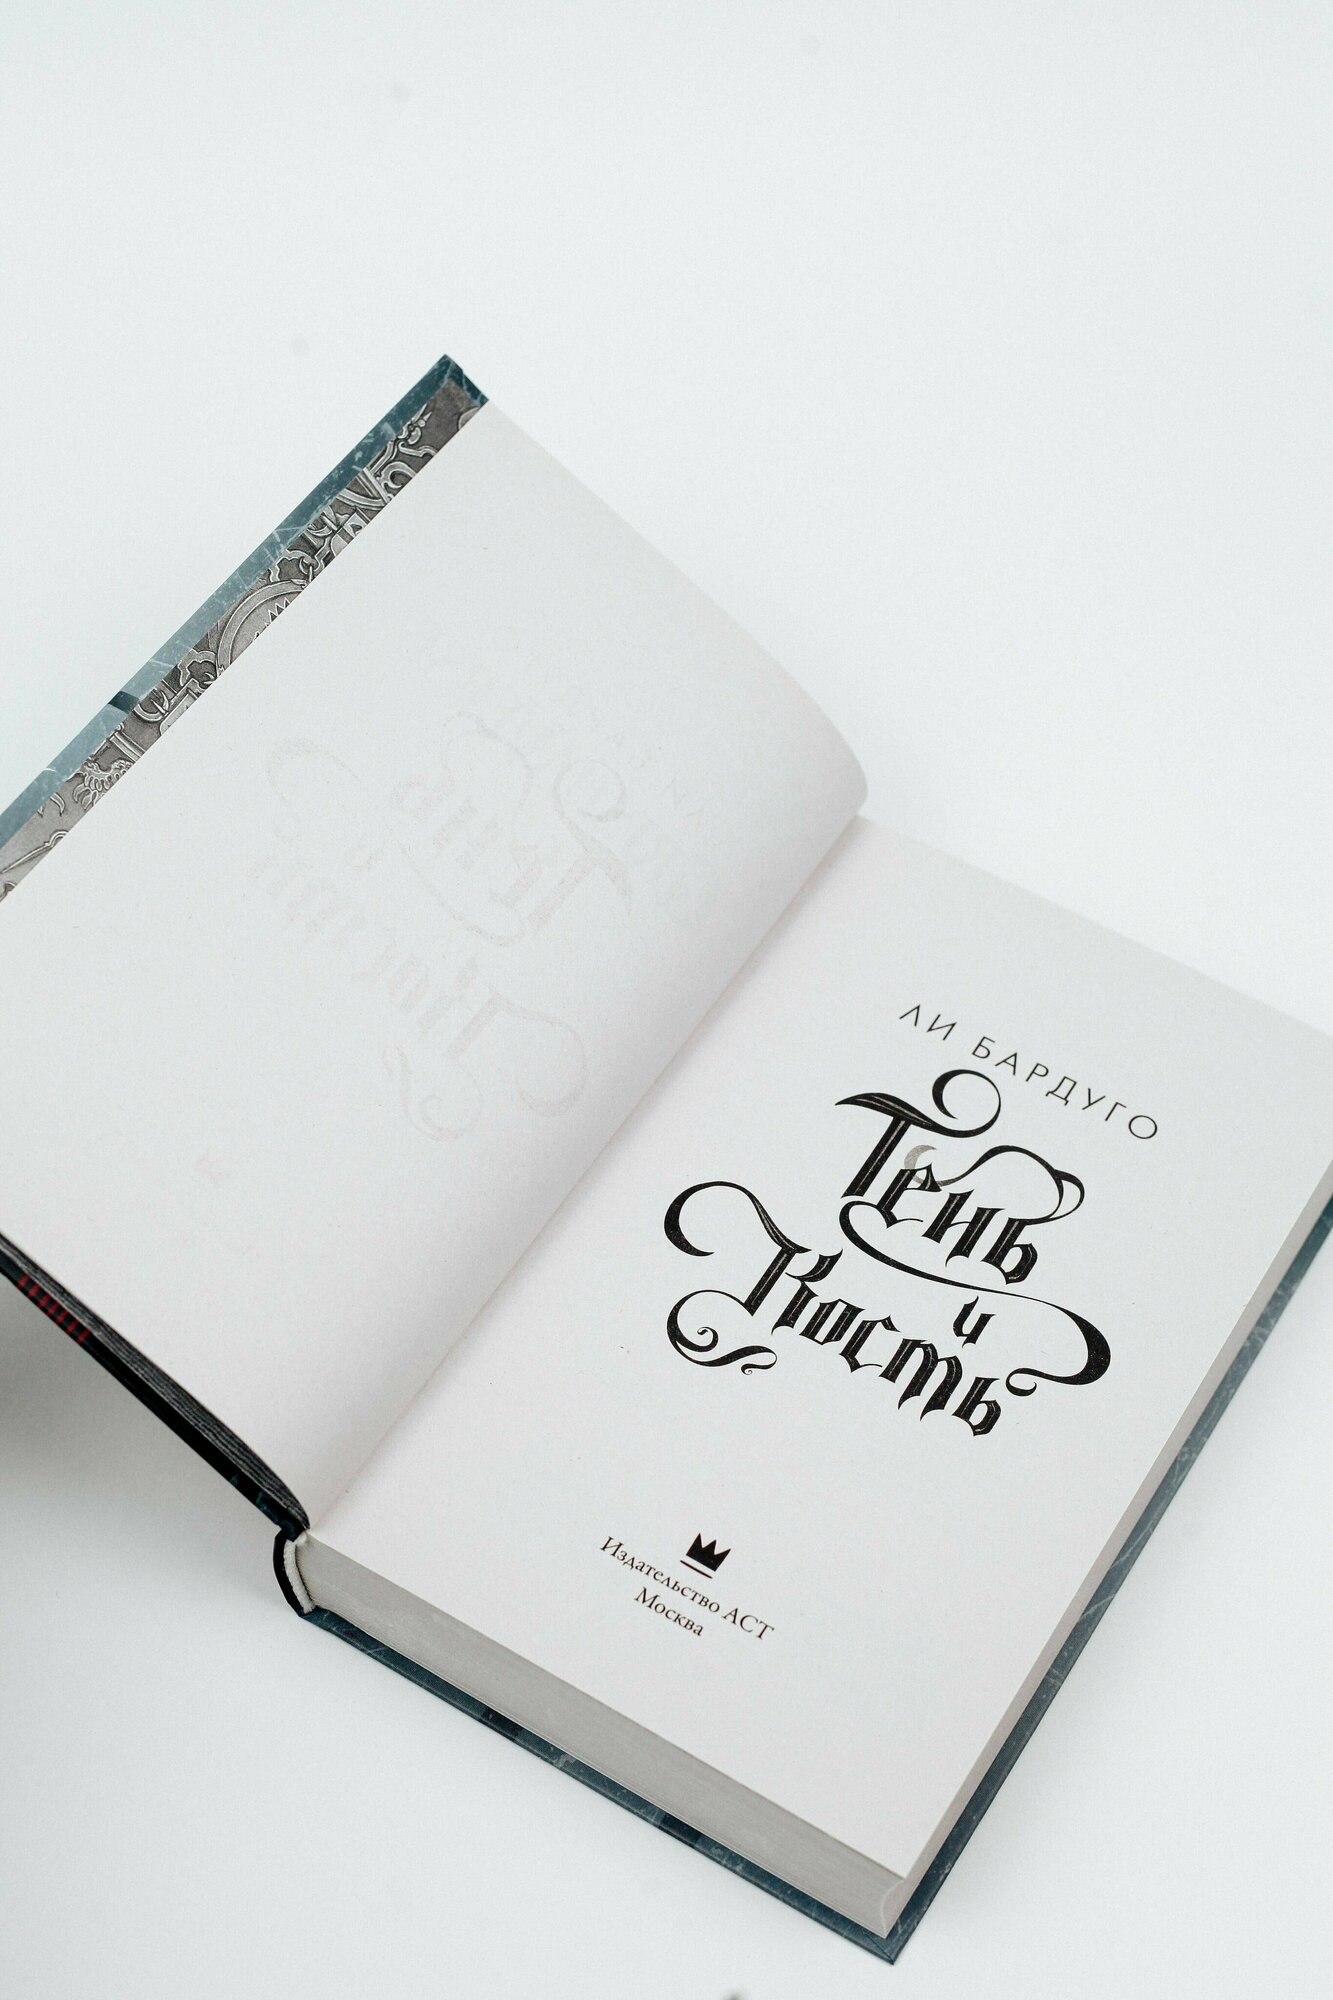 ЛИ БАРДУГО
Тень
и
Кость
Издательство АСТ
Москва